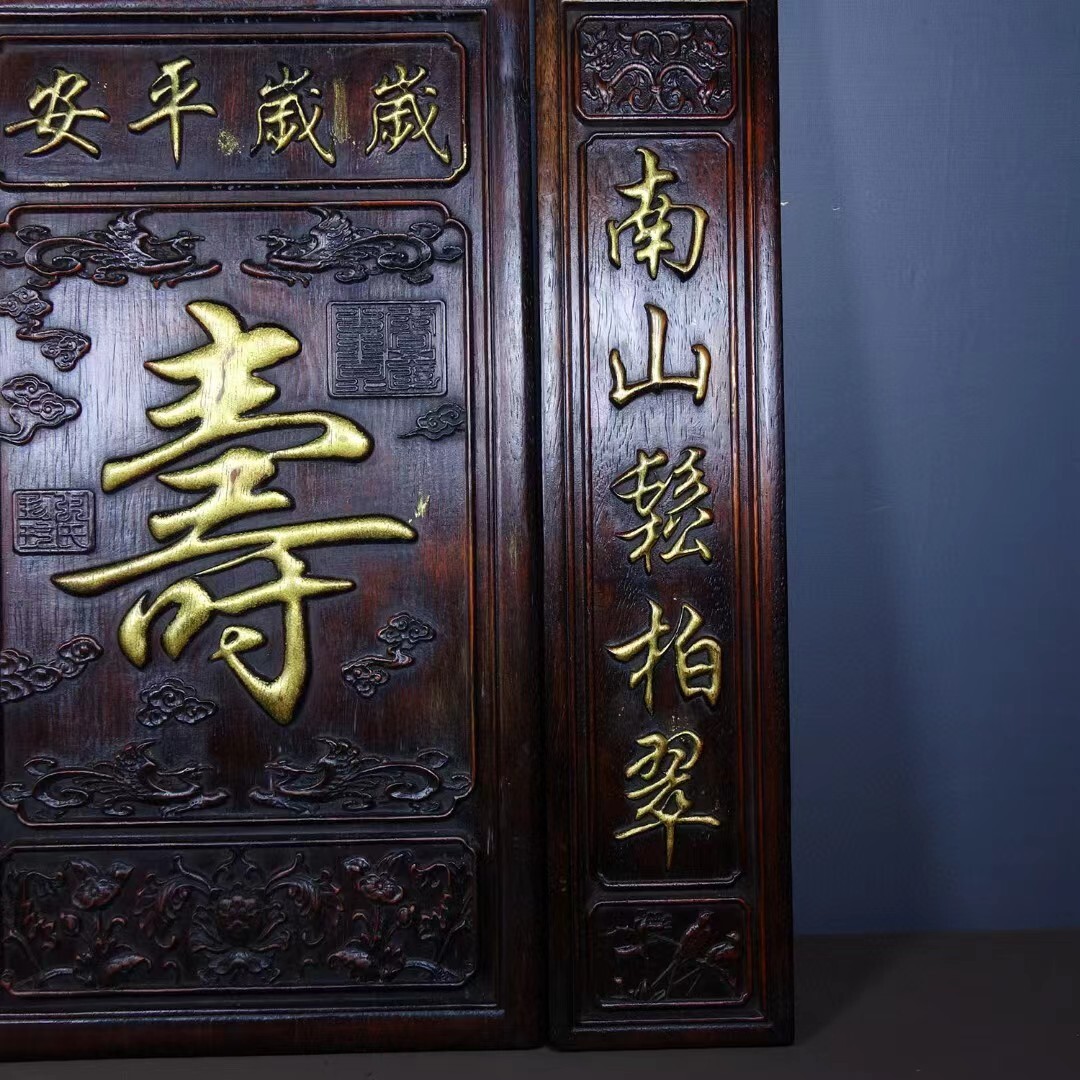 歲歲平安
壽
南山鬆柏翠